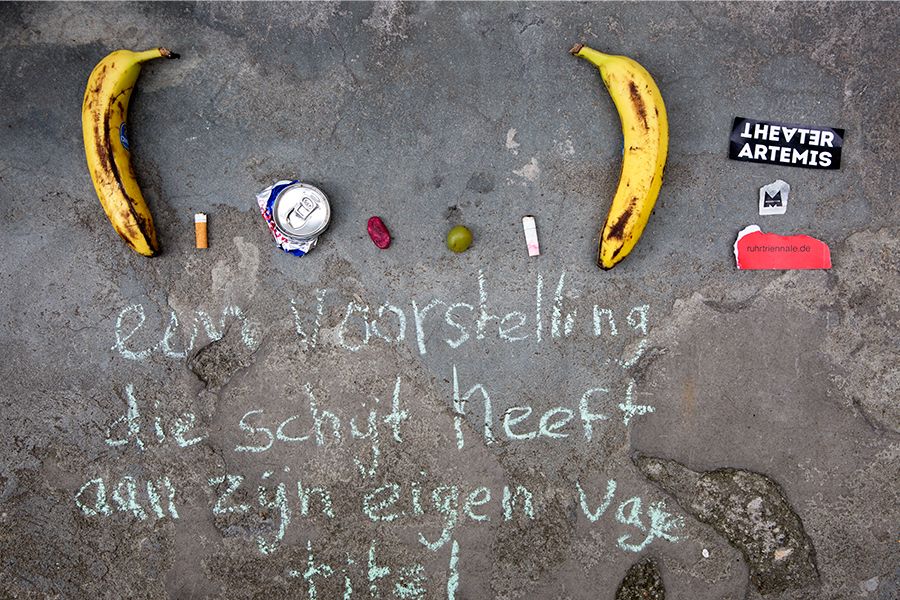 THEATER
ARTEMIS
M
ruhrtriennale.de
een voorstelling
die schijt heeft
aan zijn eigen vage
titel